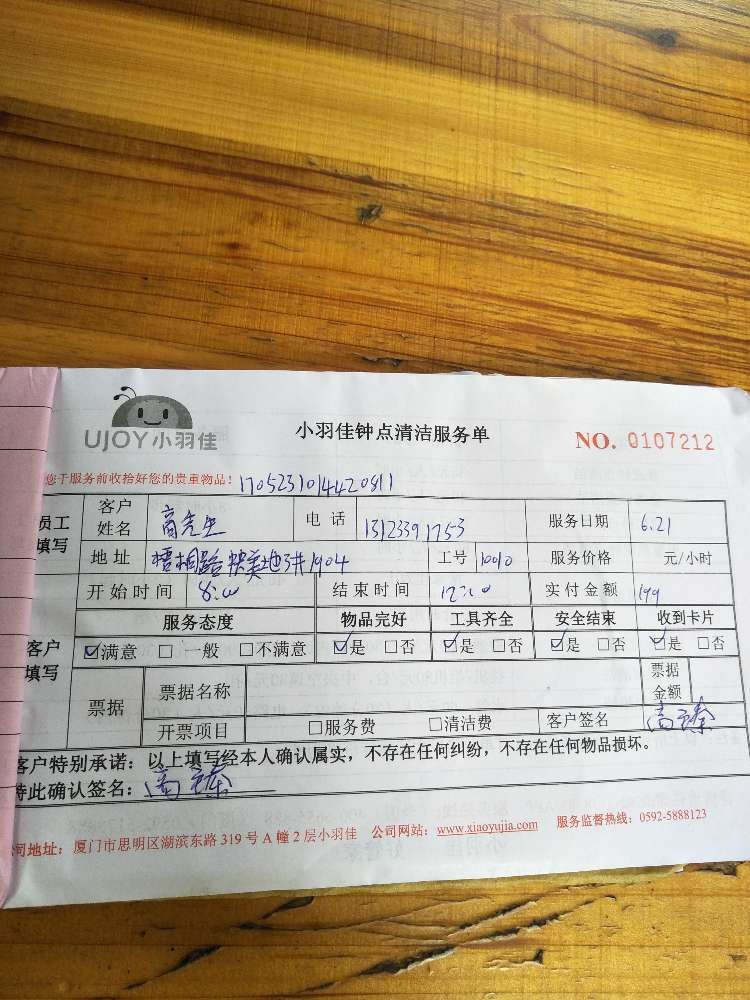 UJOY小羽佳
小羽佳钟点清洁服务单
NO. 0107212
您于服务前收拾好您的贵重物品! 1705231014420811
员工填写 客户姓名 高先生 电话 13123391753 服务日期 6.21
地址 梧桐路 1904 工号 10010 服务价格 元/小时
开始时间 8:00 结束时间 12:00 实付金额 199
客户填写 服务态度 物品完好 工具齐全 安全结束 收到卡片
☑满意 □一般 □不满意 ☑是 □否 ☑是 □否 ☑是 □否 ☑是 □否
票据 票据名称 票据金额
开票项目 □服务费 □清洁费 客户签名 高
客户特别承诺：以上填写经本人确认属实，不存在任何纠纷，不存在任何物品损坏。
特此确认签名：高
公司地址：厦门市思明区湖滨东路 319 号 A 幢 2 层小羽佳 公司网站：www.xiaoyujia.com 服务监督热线：0592-5888123